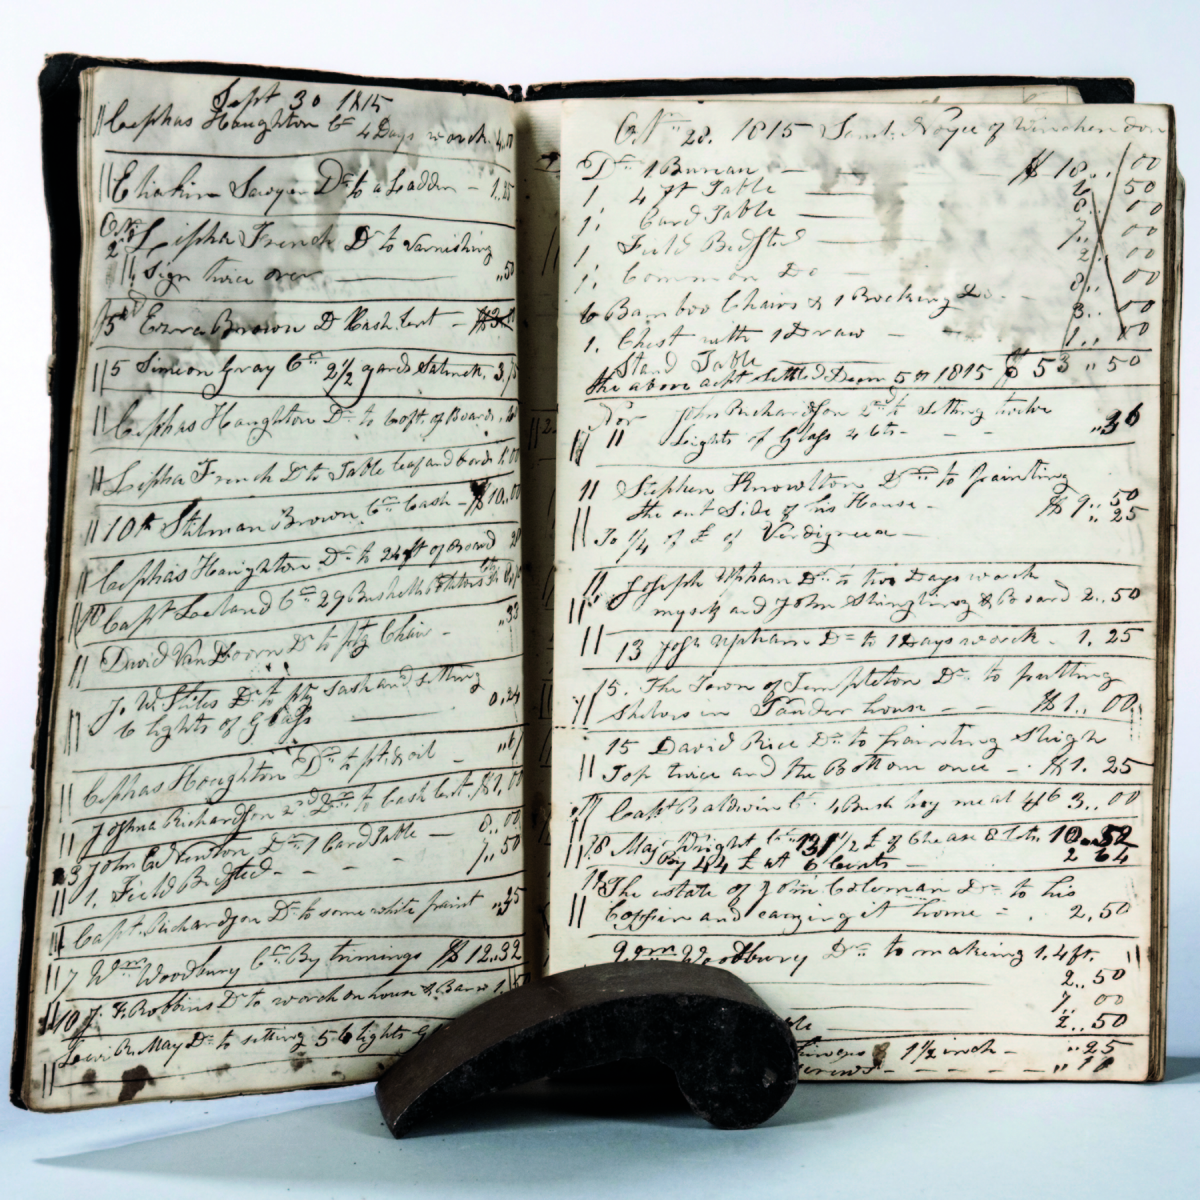 Sept 30 1815
Cephas Houghton Cr 4 Days work 4,00
Eliakim Sawyer Dr to a Ladder - 1.25
Octr
2 Lipha French Dr to varnishing
Sign twice over ,,50
5th Ezra Brown Dr Cash lent -
5 Simeon Gray Cr 2 1/2 yards Satinet. 3,75
Cephas Houghton Dr to 60 ft. of Boards
Lipha French Dr to Table leaf and boards
10th Stilman Brown Cr Cash - $10,,00
Cephas Houghton Dr to 24 ft of Board
Capt Leeland Cr 29 Bushells
David VanDoorn Dr to ptg Chair - ,,33
J. W. Stiles Dr to ptg sash and setting
6 lights of Glass 0,24
Cephas Houghton Dr to pt. & oil -
Joshua Richardson 2nd Dr to Cash lent. $1,00
John Newton Dr 1 Card Table - 8,,00
1. Field Bedsted - - - 7,,50
Capt. Richardson Dr to some white paint
17 Wm Woodbury Cr By trimings $12,,32
Robbins Dr to work on house & Barn 1,50
Levi May Dr to setting 56 lights
Octr 28. 1815 Saml. Noyce of Winchendon
Dr 1 Bureau - - $18,,00
1 4 ft Table - 6 50
1, Card Table 8,, 00
1, Field Bedsted 7,, 00
1, Common Do 2. 00
6 Bamboo Chairs & 1 Rocking Do - - 8,, 00
1. Chest with 1 Draw - 3.. 00
Stand Table 1,, 00
the above acpt settled Decm 5th 1815 $53 ,,50
Nov John Richardson 2nd to setting twelve
Lights of Glass 2 Cts - - - ,,36
Stephen Knowlton Dr to painting
the out Side of his House - $9,,50
To 1/4 of £ of Verdigreece - ,,25
Joseph Upham Dr to two Days work
myself and John Shingling & Board 2,,50
13 Josh Upham Dr to 1 Days work - 1.25
15. The Town of Templeton Dr to putting
Shelves in Powder house - - $1,,00
15 David Rice Dr to painting Sleigh
Top twice and the Bottom once - $1.25
Capt Baldwin Cr 4 Bush hay 3..00
44 £ at 6 Cents 2 64
The estate of John Coleman Dr to his
Coffin and carrying it home - 2,50
Wm Woodbury Dr to making 1. 4ft.
2..50
7, 00
2..50
1 1/2 inch - ,,25
screws - - - -